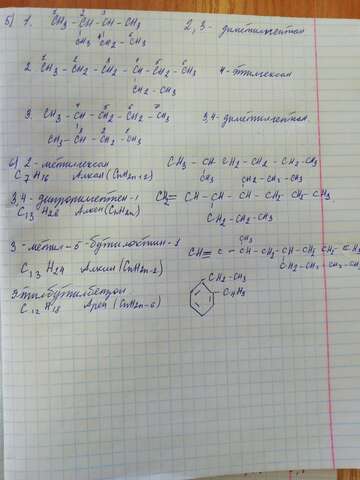 5) 1. CH3 – CH – CH – CH3 2, 3 - диметилпентан
CH3 CH2 – CH3
2. CH3 – CH2 – CH2 – CH – CH2 – CH3 4 - этилгексан
CH2 – CH3
3. CH3 – CH – CH2 – CH2 – CH3 3,4 - диметилгептан
CH3 – CH – CH2 – CH3
6) 2 - метилгексан CH3 – CH – CH2 – CH2 – CH2 – CH3
C7H16 Алкан (CnH2n+2) CH3
3,4 - дипропилгептен - 1 CH2 = CH – CH – CH – CH2 – CH2 – CH3
C13H26 Алкен (CnH2n) CH2 – CH2 – CH3
3 - метил - 5 - бутилоктин - 1 CH ≡ C – CH – CH2 – CH – CH2 – CH2 – CH3
CH3
C13H24 Алкин (CnH2n-2) CH2 – CH2 – CH2 – CH3
Этилбутилбензол CH2 – CH3
C12H18 Арен (CnH2n-6)